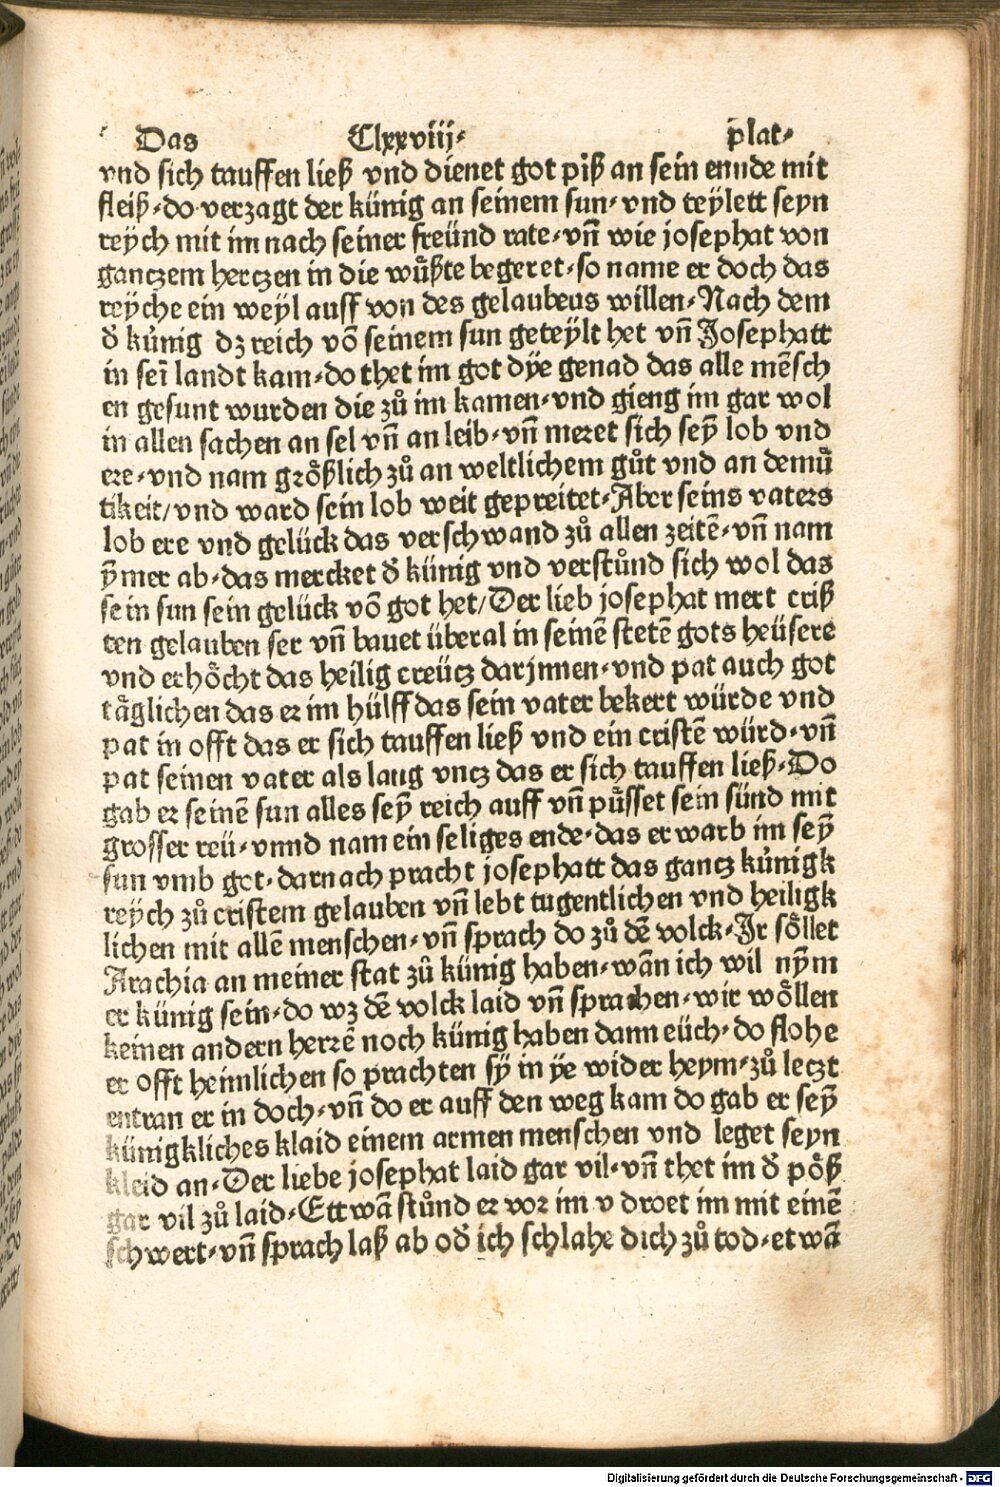 Das Clxxviij· plat·
vnd sich tauffen ließ vnd dienet got piß an sein ennde mit
fleiß·do verzagt der künig an seinem sun·vnd teÿlett seyn
reÿch mit im nach seiner freünd rate·vn̄ wie josephat von
ganczem hertzen in die wůßte begeret·so name er doch das
reÿche ein weÿl auff von des gelaubens willen·Nach dem
đ künig dz reich vō seinem sun geteÿlt het vn̄ Josephatt
in seī landt kam·do thet im got dÿe genad das alle mēsch
en gesunt wurden die zů im kamen·vnd gieng im gar wol
in allen sachen an sel vn̄ an leib·vn̄ meret sich seȳ lob vnd
ere·vnd nam grŏßlich zů an weltlichem gůt vnd an demů
tikeit/vnd ward sein lob weit gepreitet·Aber seins vaters
lob ere vnd gelück das verschwand zů allen zeitē·vn̄ nam
ȳmer ab·das mercket đ künig vnd verstůnd sich wol das
sein sun sein gelück vō got het/Der lieb josephat mert criß
ten gelauben ser vn̄ bauet überal in seinē stetē gots heüsere
vnd erhŏcht das heilig creütz darjnnen·vnd pat auch got
tăglichen das er im hülff das sein vater bekert würde vnd
pat in offt das er sich tauffen ließ vnd ein cristē würd·vn̄
pat seinen vater als lang vncz das er sich tauffen ließ·Do
gab er seinē sun alles seȳ reich auff vn̄ půsset sein sünd mit
grosser reü·vnnd nam ein seliges ende·das erwarb im seȳ
sun vmb got·darnach pracht josephatt das gancz künigk
reÿch zů cristem gelauben vn̄ lebt tugentlichen vnd heiligk
lichen mit allē menschen·vn̄ sprach do zů dē volck·Ir sŏllet
Arachia an meiner stat zů künig haben·wān ich wil nȳm
er künig sein·do wz dē volck laid vn̄ sprachen·wir wŏllen
keinen andern herrē noch künig haben dann eüch·do flohe
er offt heimlichen so prachten sÿ in ÿe wider heym·zů letzt
entran er in doch·vn̄ do er auff den weg kam do gab er seȳ
künigkliches klaid einem armen menschen vnd leget seyn
kleid an·Der liebe josephat laid gar vil·vn̄ thet im đ pŏß
gar vil zů laid·Ettwā stůnd er vor im v droet im mit einē
schwert·vn̄ sprach laß ab ođ ich schlahe dich zů tod·etwā
Digitalisierung gefördert durch die Deutsche Forschungsgemeinschaft - DFG